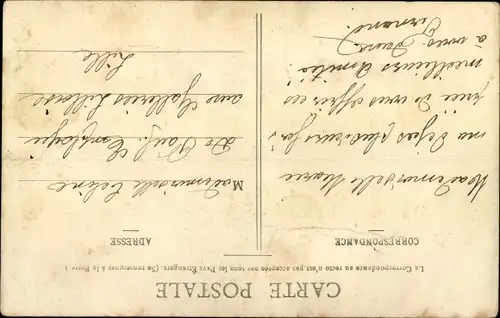 CARTE POSTALE
La Correspondance au recto n'est pas acceptée par tous les Pays Étrangers. (Se renseigner à la Poste.)
CORRESPONDANCE
Mademoiselle Marie
ma déjà plusieurs fois
priée de vous offrir ces
meilleures Amitiés.
à vous.
Fernand
ADRESSE
Mademoiselle Celine
De Employée
aux Galeries Lilloises
Lille